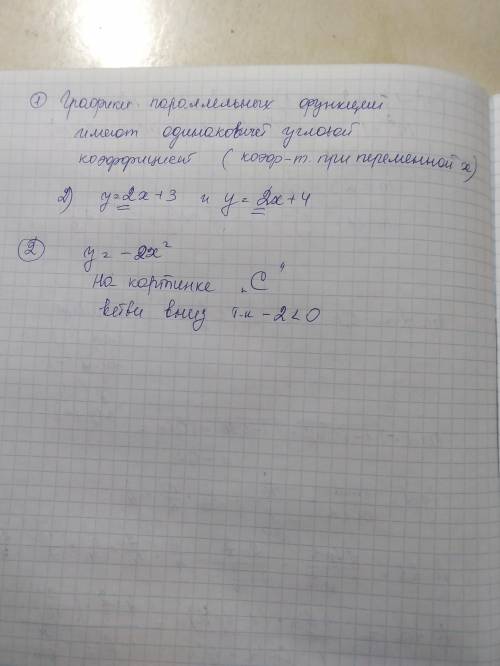 ① Графики параллельных функций
имеют одинаковый угловой
коэффициент (коэф-т. при переменной x)
D) y=2x+3 и y=2x+4
② y=-2x²
На картинке „С"
ветви вниз т.к -2<0